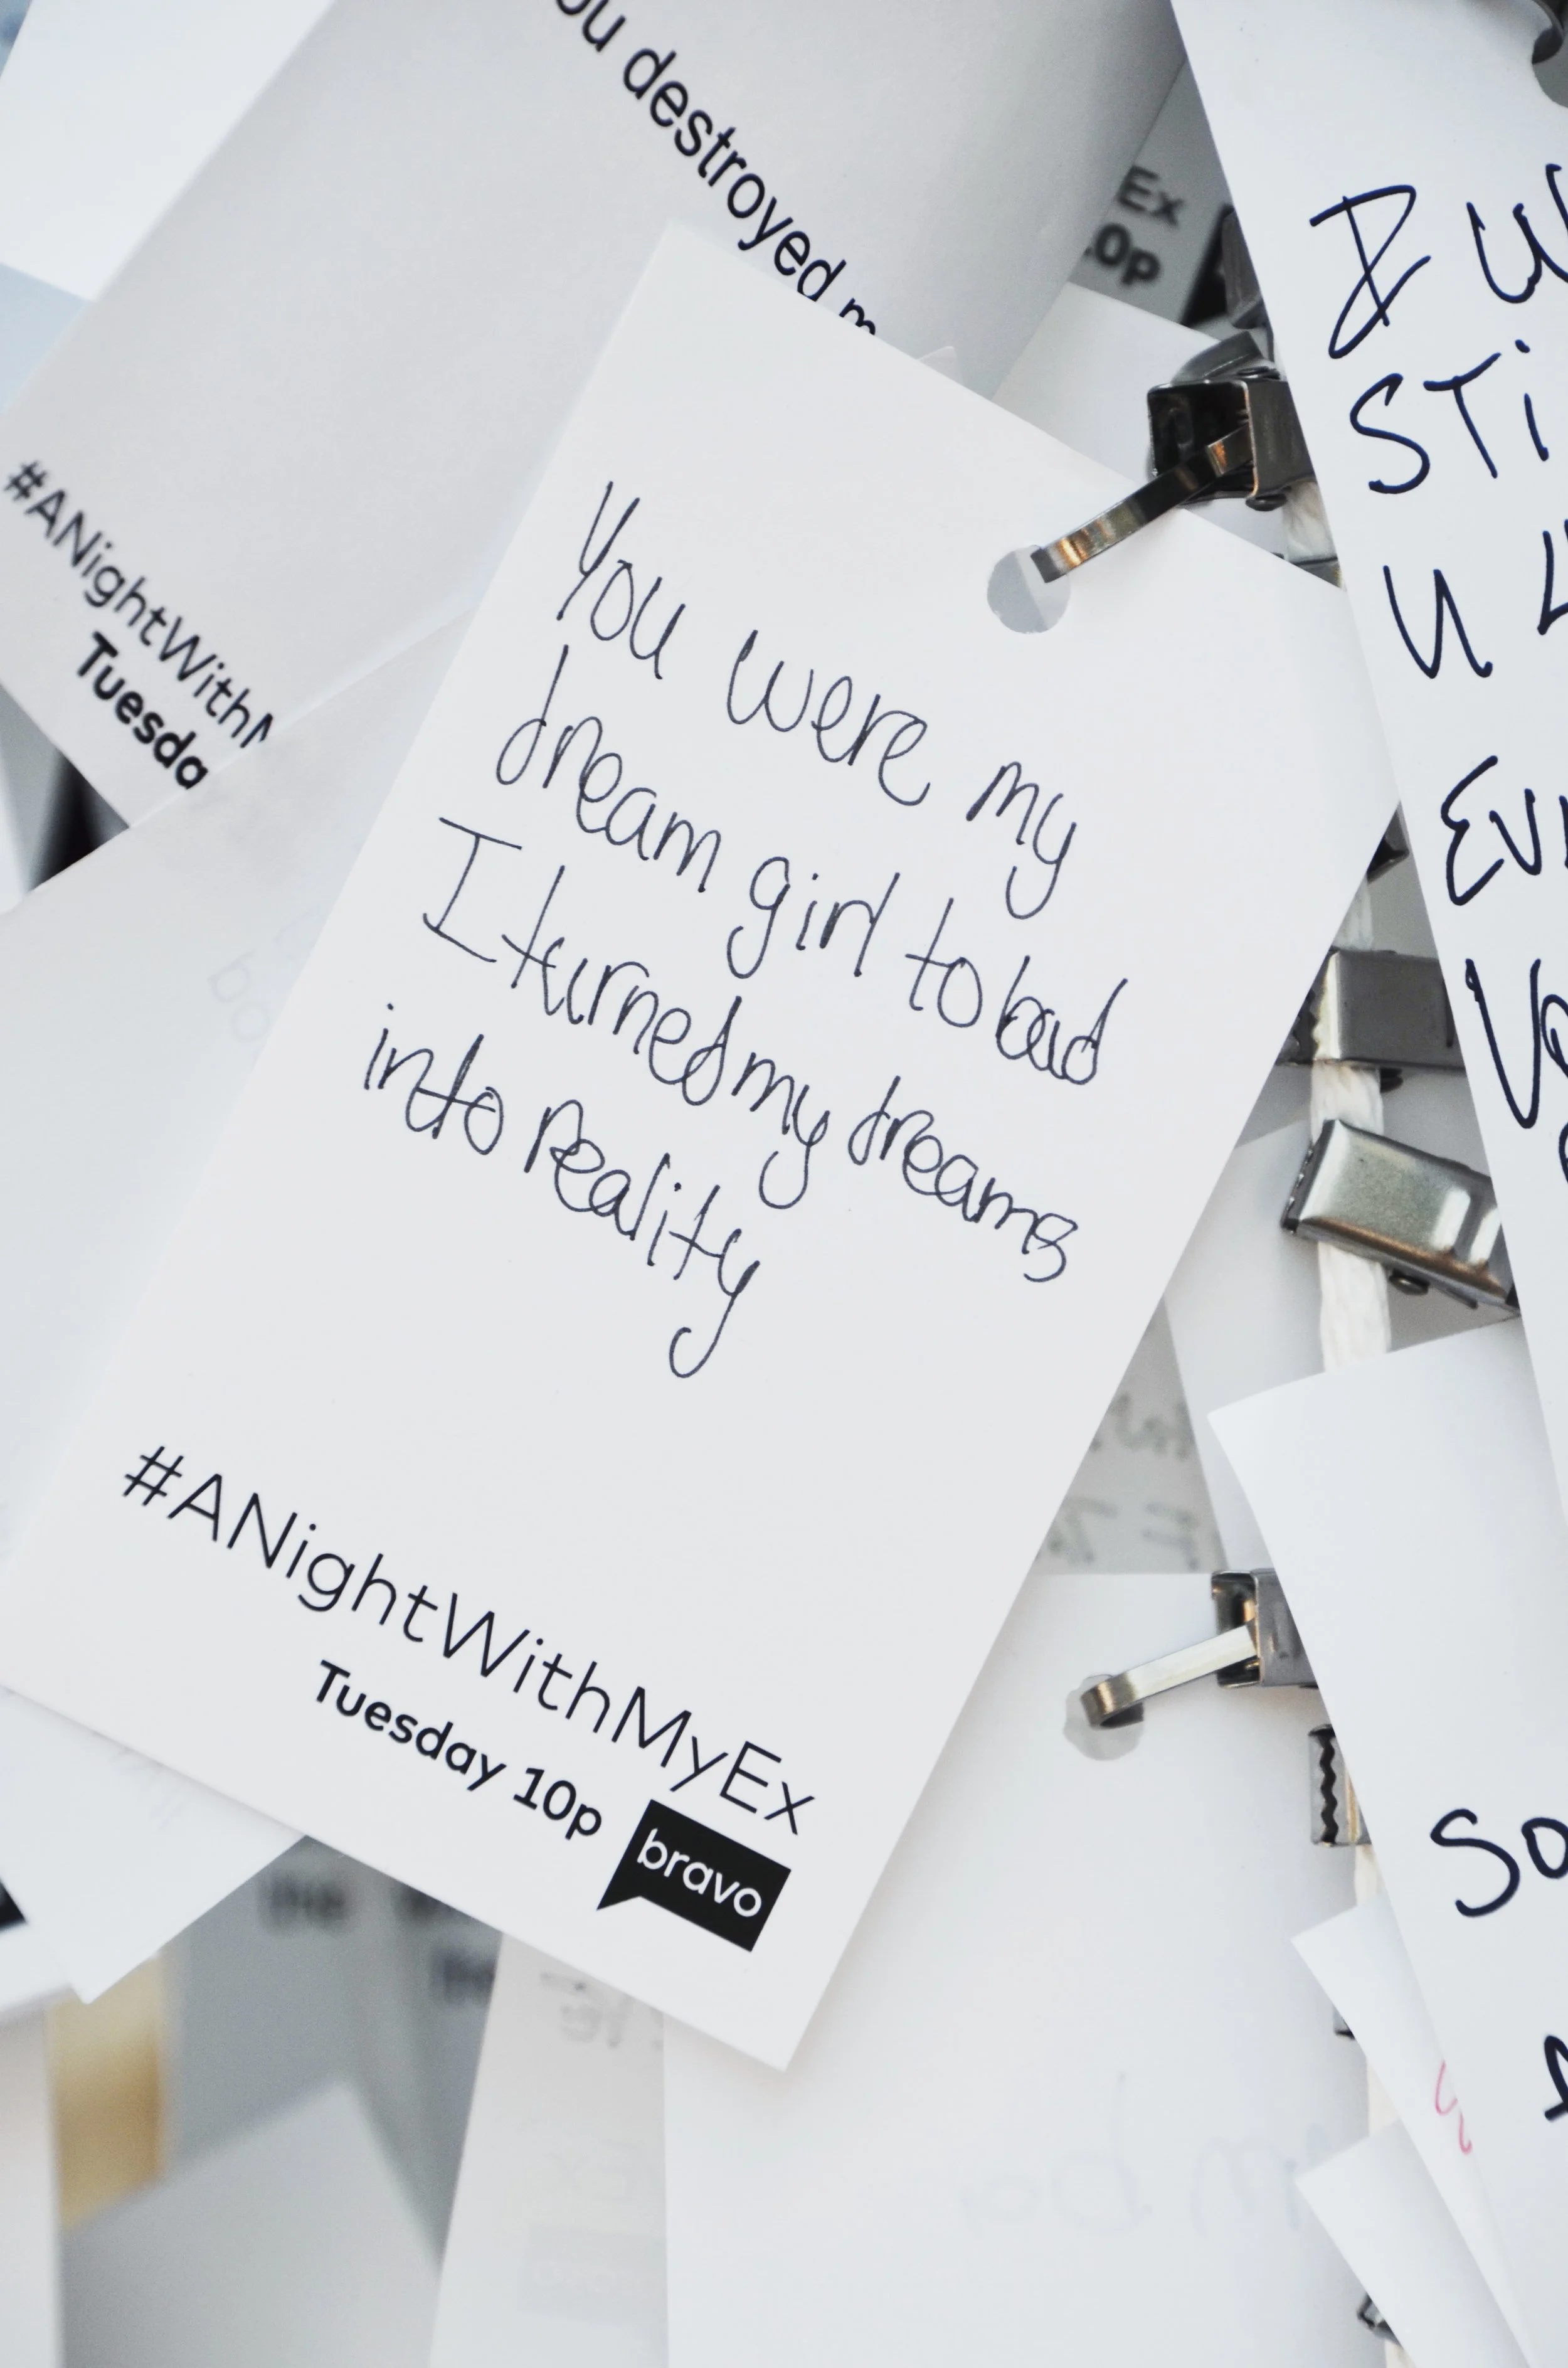 ou destroyed m
#ANightWithM
Tuesda
Ex
10p
You were my
dream girl to bad
I turned my dreams
into reality
#ANightWithMyEx
Tuesday 10p
bravo
I
STi
u
EV
So